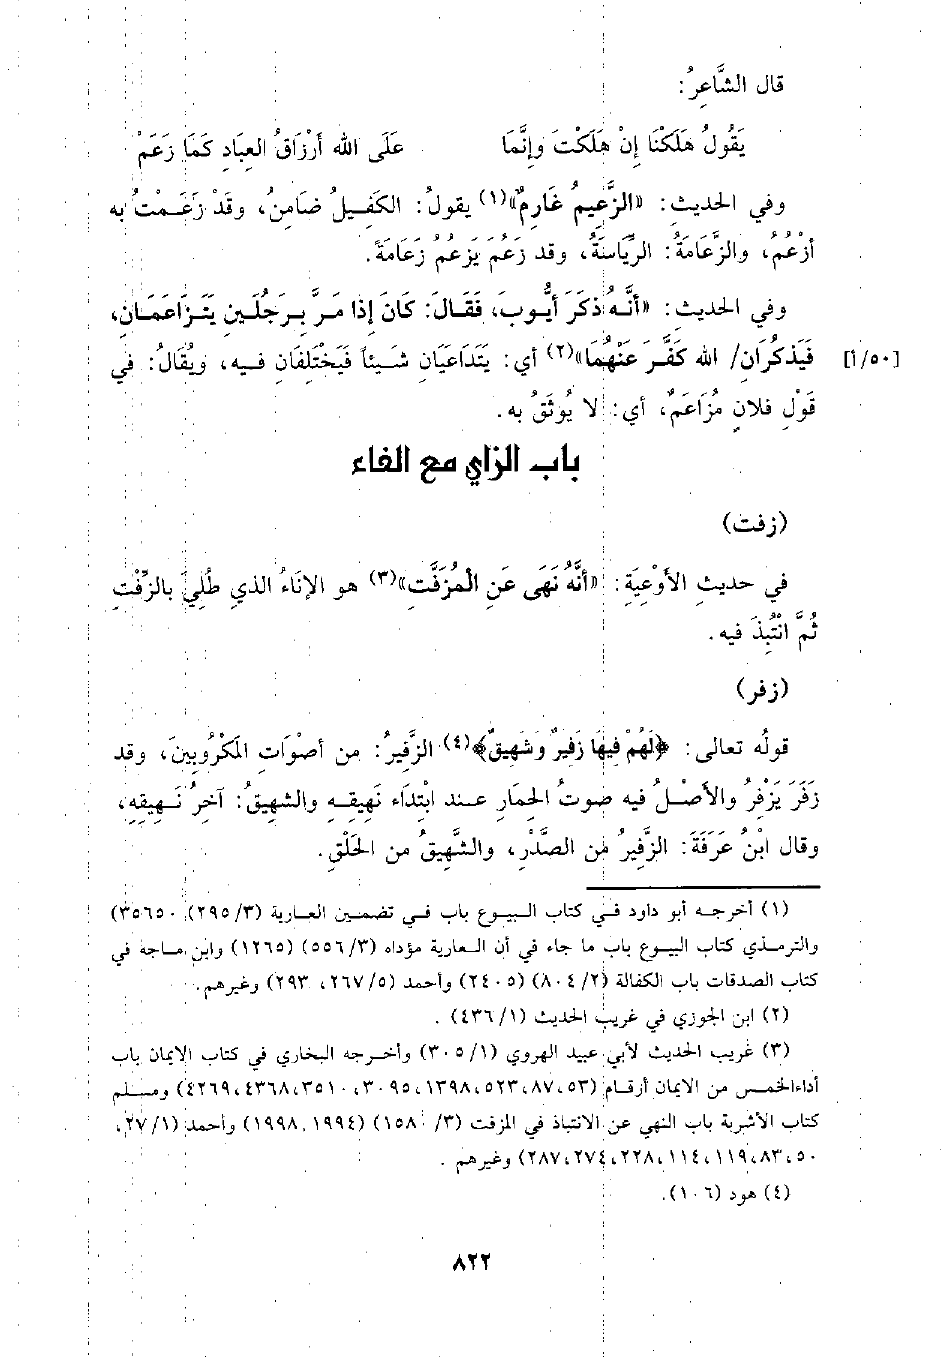 قال الشَّاعِرُ:
يَقُولُ هَلَكْنَا إِنْ هَلَكْتَ وإِنَّمَا عَلَى الله أَرْزَاقُ العِبَادِ كَمَا زَعَمْ
وفي الحديث: «الزَّعِيمُ غَارِمٌ»(١) يقولُ: الكَفِيلُ ضَامِنٌ، وقَدْ زَعَمْتُ به
أَزْعُمُ، والزَّعَامَةُ: الرِّيَاسَةُ، وقد زَعُمَ يَزعُمُ زَعَامَةً.
وفي الحديث: «أَنَّهُ ذَكَرَ أَيُّوبَ، فَقَالَ: كَانَ إِذَا مَرَّ بِرَجُلَينِ يَتَزَاعَمَانِ،
[٥٠/أ] فَيَذكُرَانِ/ الله كَفَّرَ عَنْهُمَا»(٢) أي: يَتَدَاعَيَانِ شَيئاً فَيَختَلِفَانِ فيه، ويُقَالُ: في
قَوْلِ فلانٍ مُزَاعَمٌ، أي: لا يُوثَقُ به.
باب الزاي مع الفاء
(زفت)
في حديثِ الأَوْعِيَةِ: «أَنَّهُ نَهَى عَنِ الْمُزَفَّتِ»(٣) هو الإنَاءُ الذي طُلِيَ بالزِّفْتِ
ثُمَّ انْتُبِذَ فيه.
(زفر)
قولُه تعالى: ﴿لَهُمْ فِيهَا زَفِيرٌ وَشَهِيقٌ﴾(٤) الزَّفِيرُ: من أصْوَاتِ المَكْرُوبِينَ، وقد
زَفَرَ يَزْفِرُ والأصْلُ فيه صوتُ الحمَارِ عند ابْتِدَاءِ نَهِيقِهِ والشهِيقُ: آخِرُ نَهِيقِه،
وقال ابْنُ عَرَفَةَ: الزَّفِيرُ من الصَّدْرِ، والشَّهِيقُ من الحَلْقِ.
(١) أخرجه أبو داود في كتاب البيوع باب في تضمين العارية (٢٩٥/٣) (٣٥٦٥)
والترمذي كتاب البيوع باب ما جاء في أن العارية مؤداه (٥٥٦/٣) (١٢٦٥) وابن ماجه في
كتاب الصدقات باب الكفالة (٨٠٤/٢) (٢٤٠٥) وأحمد (٢٦٧/٥، ٢٩٣) وغيرهم.
(٢) ابن الجوزي في غريب الحديث (٤٣٦/١) .
(٣) غريب الحديث لأبي عبيد الهروي (٣٠٥/١) وأخرجه البخاري في كتاب الايمان باب
أداءالخمس من الايمان أرقام (٥٣،٨٧،٥٢٣،١٣٩٨،٣٠٩٥،٣٥١٠،٤٣٦٨،٤٢٦٩) ومسلم
كتاب الأشربة باب النهي عن الانتباذ في المزفت (٣/ ١٥٨) (١٩٩٤، ١٩٩٨) وأحمد (٢٧/١،
٥٠،٨٣،١١٩،١١٤،٢٢٨،٢٧٤،٢٨٧) وغيرهم .
(٤) هود (١٠٦).
٨٢٢